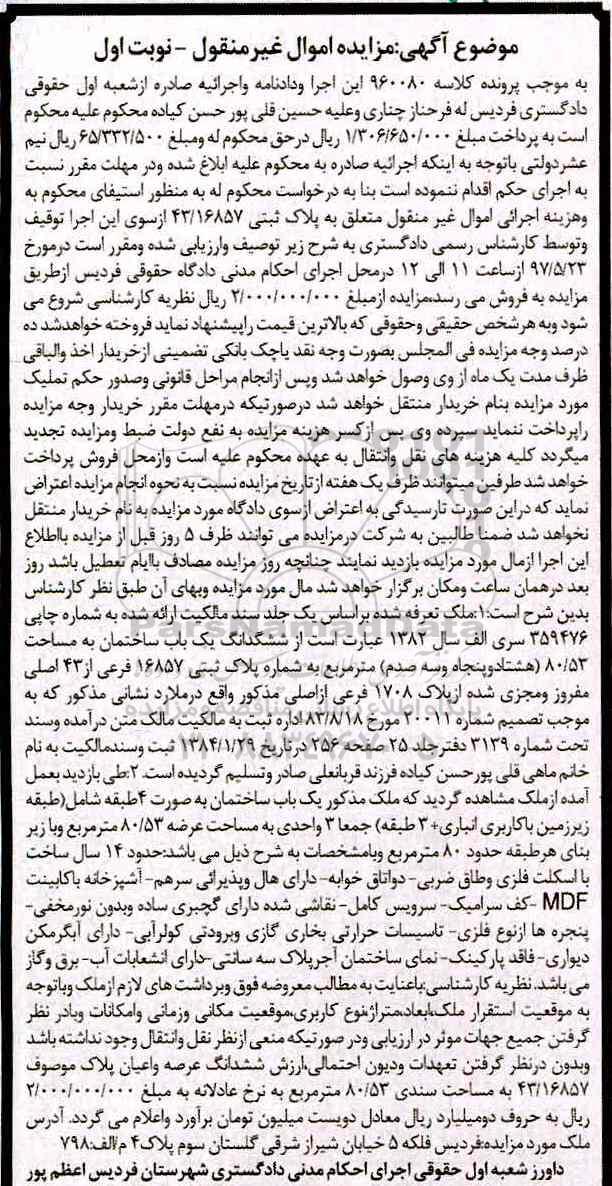 موضوع آگهی:مزایده اموال غیرمنقول -نوبت اول
به موجب پرونده کلاسه ۹۶۰۰۸۰ این اجرا ودادنامه واجرائیه صادره ازشعبه اول حقوقی
دادگستری فردیس له فرحناز چناری وعلیه حسین قلی پور حسن کیاده محکوم علیه محکوم
است به پرداخت مبلغ ۱/۳۰۶/۶۵۰/۰۰۰ ریال درحق محکوم له ومبلغ ۶۵/۳۳۲/۵۰۰ ریال نیم
عشردولتی باتوجه به اینکه اجرائیه صادره به محکوم علیه ابلاغ شده ودر مهلت مقرر نسبت
به اجرای حکم اقدام ننموده است بنا به درخواست محکوم له به منظور استیفای محکوم به
وهزینه اجرائی اموال غیر منقول متعلق به پلاک ثبتی ۴۳/۱۶۸۵۷ ازسوی این اجرا توقیف
وتوسط کارشناس رسمی دادگستری به شرح زیر توصیف وارزیابی شده ومقرر است درمورخ
۹۷/۵/۲۳ ازساعت ۱۱ الی ۱۲ درمحل اجرای احکام مدنی دادگاه حقوقی فردیس ازطریق
مزایده به فروش می رسد،مزایده ازمبلغ ۲/۰۰۰/۰۰۰/۰۰۰ ریال نظریه کارشناسی شروع می
شود وبه هرشخص حقیقی وحقوقی که بالاترین قیمت راپیشنهاد نماید فروخته خواهدشد ده
درصد وجه مزایده فی المجلس بصورت وجه نقد یاچک بانکی تضمینی ازخریدار اخذ والباقی
ظرف مدت یک ماه از وی وصول خواهد شد وپس ازانجام مراحل قانونی وصدور حکم تملیک
مورد مزایده بنام خریدار منتقل خواهد شد درصورتیکه درمهلت مقرر خریدار وجه مزایده
راپرداخت ننماید سپرده وی پس ازکسر هزینه مزایده به نفع دولت ضبط ومزایده تجدید
میگردد کلیه هزینه های نقل وانتقال به عهده محکوم علیه است وازمحل فروش پرداخت
خواهد شد طرفین میتوانند ظرف یک هفته ازتاریخ مزایده نسبت به نحوه انجام مزایده اعتراض
نماید که دراین صورت تارسیدگی به اعتراض ازسوی دادگاه مورد مزایده به نام خریدار منتقل
نخواهد شد ضمناً طالبین به شرکت درمزایده می توانند ظرف ۵ روز قبل از مزایده بااطلاع
این اجرا ازمال مورد مزایده بازدید نمایند چنانچه روز مزایده مصادف باایام تعطیل باشد روز
بعد درهمان ساعت ومکان برگزار خواهد شد مال مورد مزایده وبهای آن طبق نظر کارشناس
بدین شرح است:۱:ملک تعرفه شده براساس یک جلد سند مالکیت ارائه شده به شماره چاپی
۳۵۹۴۷۶ سری الف سال ۱۳۸۲ عبارت است از ششگدانگ یک باب ساختمان به مساحت
۸۰/۵۳ (هشتادوپنجاه وسه صدم) مترمربع به شماره پلاک ثبتی ۱۶۸۵۷ فرعی از۴۳ اصلی
مفروز ومجزی شده ازپلاک ۱۷۰۸ فرعی ازاصلی مذکور واقع درملارد نشانی مذکور که به
موجب تصمیم شماره ۲۰۰۱۱ مورخ ۸۳/۸/۱۸ اداره ثبت به مالکیت مالک متن درآمده وسند
تحت شماره ۳۱۳۹ دفترجلد ۲۵ صفحه ۲۵۶ درتاریخ ۱۳۸۴/۱/۲۹ ثبت وسندمالکیت به نام
خانم ماهی قلی پورحسن کیاده فرزند قربانعلی صادر وتسلیم گردیده است. ۲:طی بازدید بعمل
آمده ازملک مشاهده گردید که ملک مذکور یک باب ساختمان به صورت ۴طبقه شامل(طبقه
زیرزمین باکاربری انباری+ ۳ طبقه) جمعا ۳ واحدی به مساحت عرضه ۸۰/۵۳ مترمربع وبا زیر
بنای هرطبقه حدود ۸۰ مترمربع وبامشخصات به شرح ذیل می باشد:حدود ۱۴ سال ساخت
با اسکلت فلزی وطاق ضربی- دواتاق خوابه- دارای هال وپذیرائی سرهم- آشپزخانه باکابینت
MDF -کف سرامیک- سرویس کامل- نقاشی شده دارای گچبری ساده وبدون نورمخفی-
پنجره ها ازنوع فلزی- تاسیسات حرارتی بخاری گازی وبرودتی کولرآبی- دارای آبگرمکن
دیواری- فاقد پارکینگ- نمای ساختمان آجرپلاک سه سانتی-دارای انشعابات آب- برق وگاز
می باشد. نظریه کارشناسی:باعنایت به مطالب معروضه فوق وبرداشت های لازم ازملک وباتوجه
به موقعیت استقرار ملک،ابعاد،متراژ،نوع کاربری،موقعیت مکانی وزمانی وامکانات وبادر نظر
گرفتن جمیع جهات موثر در ارزیابی ودر صورتیکه منعی ازنظر نقل وانتقال وجود نداشته باشد
وبدون درنظر گرفتن تعهدات ودیون احتمالی،ارزش ششدانگ عرصه واعیان پلاک موصوف
۴۳/۱۶۸۵۷ به مساحت سندی ۸۰/۵۳ مترمربع به نرخ عادلانه به مبلغ ۲/۰۰۰/۰۰۰/۰۰۰
ریال به حروف دومیلیارد ریال معادل دویست میلیون تومان برآورد واعلام می گردد. آدرس
ملک مورد مزایده:فردیس فلکه ۵ خیابان شیراز شرقی گلستان سوم پلاک۴ م/الف:۷۹۸
داورز شعبه اول حقوقی اجرای احکام مدنی دادگستری شهرستان فردیس اعظم پور